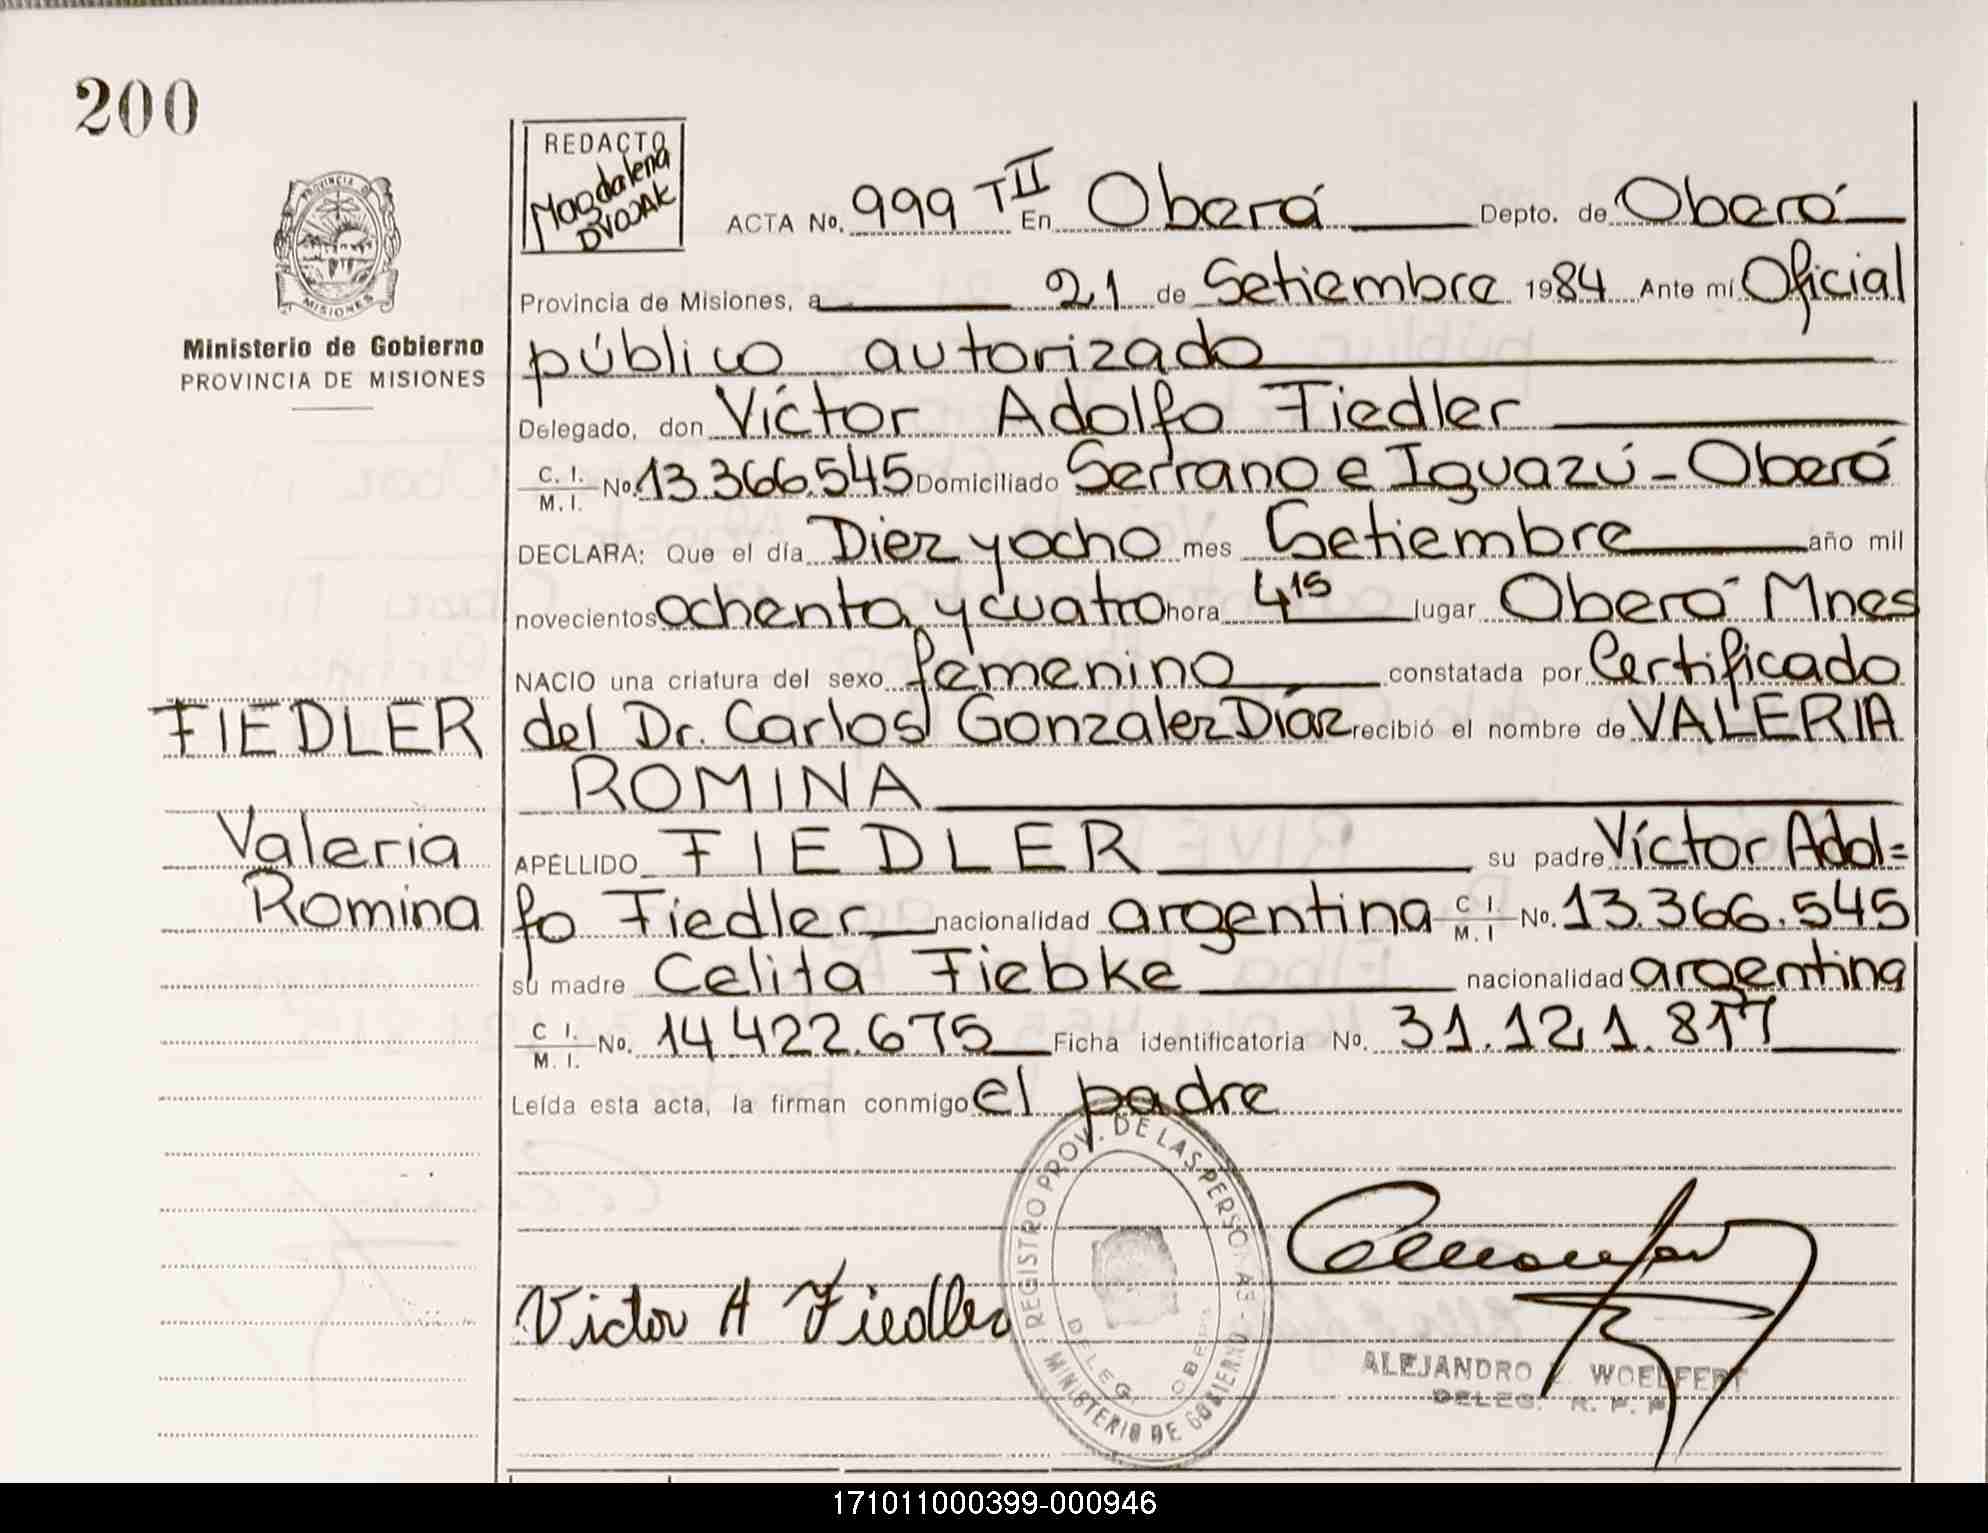 200
REDACTO
Magdalena
DVOJAK
ACTA No. 999 TII En Oberá Depto. de Oberá
Provincia de Misiones, a 21 de Setiembre 1984 Ante mí Oficial
PROVINCIA DE
MISIONES
Ministerio de Gobierno
PROVINCIA DE MISIONES
público autorizado
Delegado, don Víctor Adolfo Fiedler
C. I.
M. I. No. 13.366.545 Domiciliado Serrano e Iguazú - Oberá
DECLARA: Que el día Diez y ocho mes Setiembre año mil
novecientos ochenta y cuatro hora 4 15 lugar Oberá Mnes
NACIO una criatura del sexo femenino constatada por Certificado
FIEDLER
del Dr. Carlos Gonzalez Díaz recibió el nombre de VALERIA
ROMINA
Valeria
Romina
APELLIDO FIEDLER su padre Víctor Adol=
fo Fiedler nacionalidad argentina C I.
M. I No. 13.366.545
su madre Celita Fiebke nacionalidad argentina
C I.
M. I. No. 14 422.675 Ficha identificatoria No. 31.121.817
Leída esta acta, la firman conmigo el padre
REGISTRO PROV. DE LAS PERSONAS - MINISTERIO DE GOBIERNO -
DELEG. OBERA
Victor A Fiedler
ALEJANDRO WOELFERT
DELEG. R. P. P.
171011000399-000946